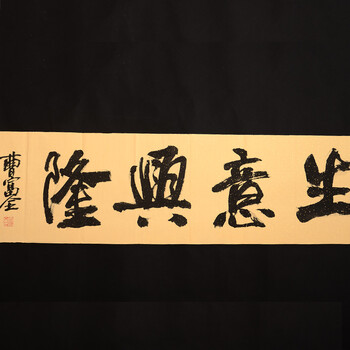 生意興隆
曹富全